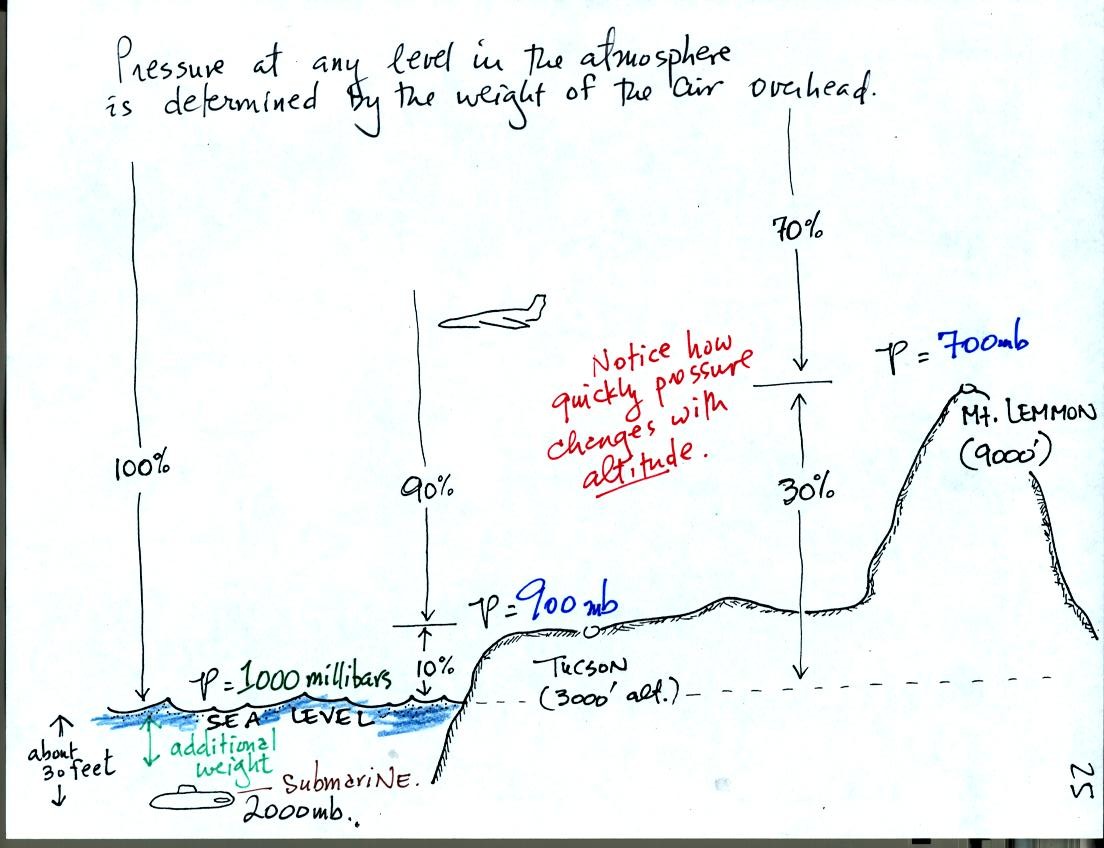 Pressure at any level in the atmosphere
is determined by the weight of the air overhead.
70%
P = 700mb
Notice how
quickly pressure
changes with
altitude.
Mt. LEMMON
(9000')
100%
90%
30%
P = 900 mb
10%
TUCSON
(3000' alt.)
P = 1000 millibars
SEA LEVEL
about
30 feet
additional
weight
SubmariNE.
2000mb..
25